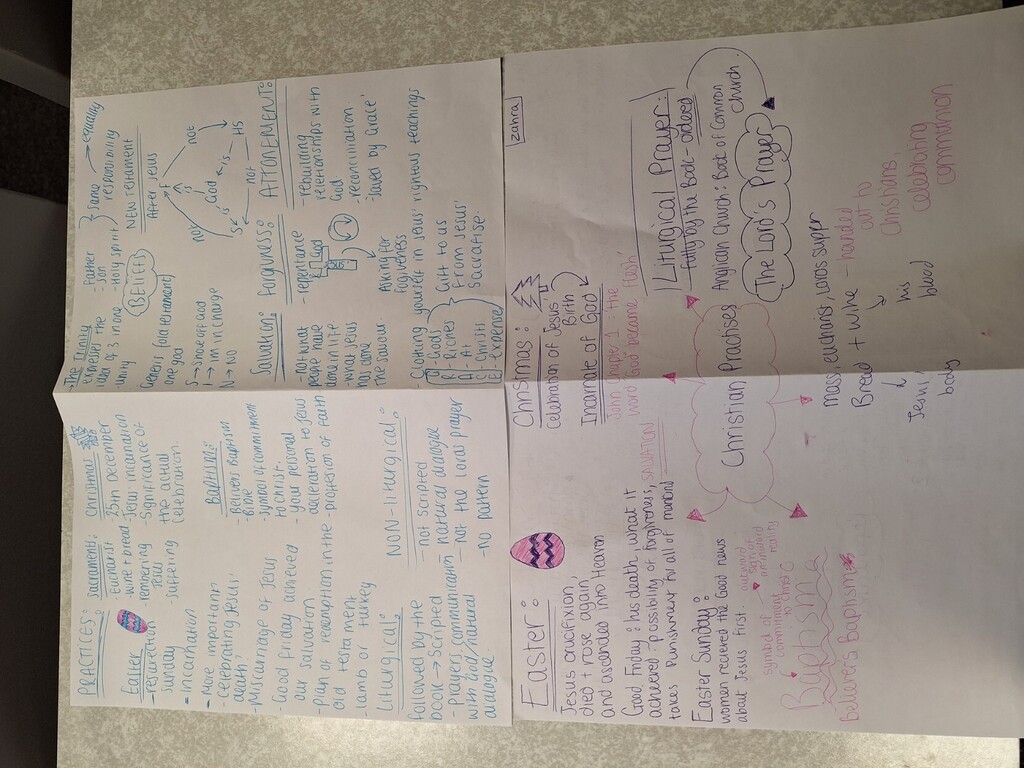 PRACTICES:
Easter
- ressurection
Sunday
- incarnation
- More important
- Celebrating Jesus'
death
- Miscarriage of Jesus
- Good Friday achieved
our salvation
- plan of redemption in the
old testament
- lamb or turkey
Sacraments:
- Eucharist
- wine + bread
Jesus
- suffering
Christmas
- 25th December
- Jesus incarnation
- Significance of
the actual
celebration.
Baptism:
- Believers Baptism
- symbol of commitment
to christ.
- your personal
to Jesus
- profession of faith
Liturgical:
followed by the
book → scripted
- prayers communication
with God/natural
dialogue.
NON-liturgical:
- not scripted
- natural dialogue
- not the lords prayer
- no pattern
- The Trinity
expresses the
idea of 3 in one
- unity
- Father
- Son
- Holy spirit
same
responsibility
→ equally
BELIEFS
Genesis (old testament)
one God
S → shove off God
I → I'm in charge
N → NO
NEW TESTAMENT
After Jesus
F
not
not
is
is
God
is
S
not
HS
Salvation:
- not what
people have
done in life
- what Jesus
has done
- the Saviour.
Forgivness:
- repentance
God
Asking for
forgiveness
ATTONEMENT:
- rebuilding
relationships with
God
- reconciliation
- 'saved by Grace'
- Clothing yourself in Jesus' righteous teachings
G - God's
R - Riches
A - At
C - Christs
E - Expense
Gift to us
From Jesus'
Sacrafise
Easter:
Jesus crucifixion,
died + rose again
and ascended into Heaven
Good Friday: his death, what it
achieved - possibility of forgivness, SALVATION
takes punishment for all of mankind
Easter Sunday:
women recieved the Good news
about Jesus first.
symbol of
commitment
to christ
outward
sign of
an inward
reality
Baptism
believers baptism
Christmas:
celebration of Jesus
Birth
Incarnate of God
'John chapt. 1: the
word God became flesh'
Christian Practises
zahra
Liturgical Prayer:
- Fully by the Book - ordered
Anglican Church: Book of Common
Church
The Lord's Prayer
mass, eucharist, Lords supper
Bread + Wine - handed
out to
Christians,
celebrating
communion
Jesus'
body
his
blood